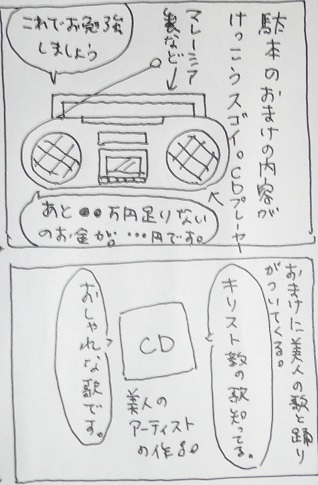 駄本のおまけの内容が
けっこうスゴイ。CDプレーヤー
マレーシア
製など
これでお勉強
しましょう
あと●●万円足りない
のお金が。…円です。
おまけに美人の歌と踊り
がついてくる。
キリスト教の歌知ってる。
CD
美人の
アーティスト
の作品。
おしゃれな歌です。